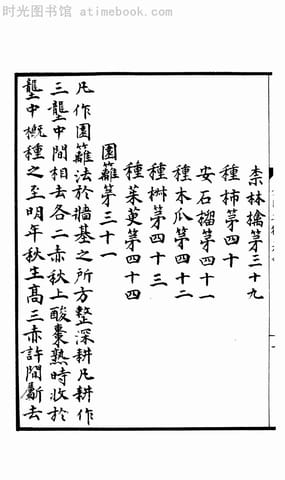 时光图书馆 - atimebook.com
柰林檎苐三十九
種柿苐四十
安石榴苐四十一
種木瓜苐四十二
種椒苐四十三
種茱萸苐四十四
園籬苐三十一
凡作園籬法於牆基之所方整深耕凡耕作
三壟中間相去各二赤秋上酸棗熟時收於
壟中概種之至明年秋生高三赤許間斸去